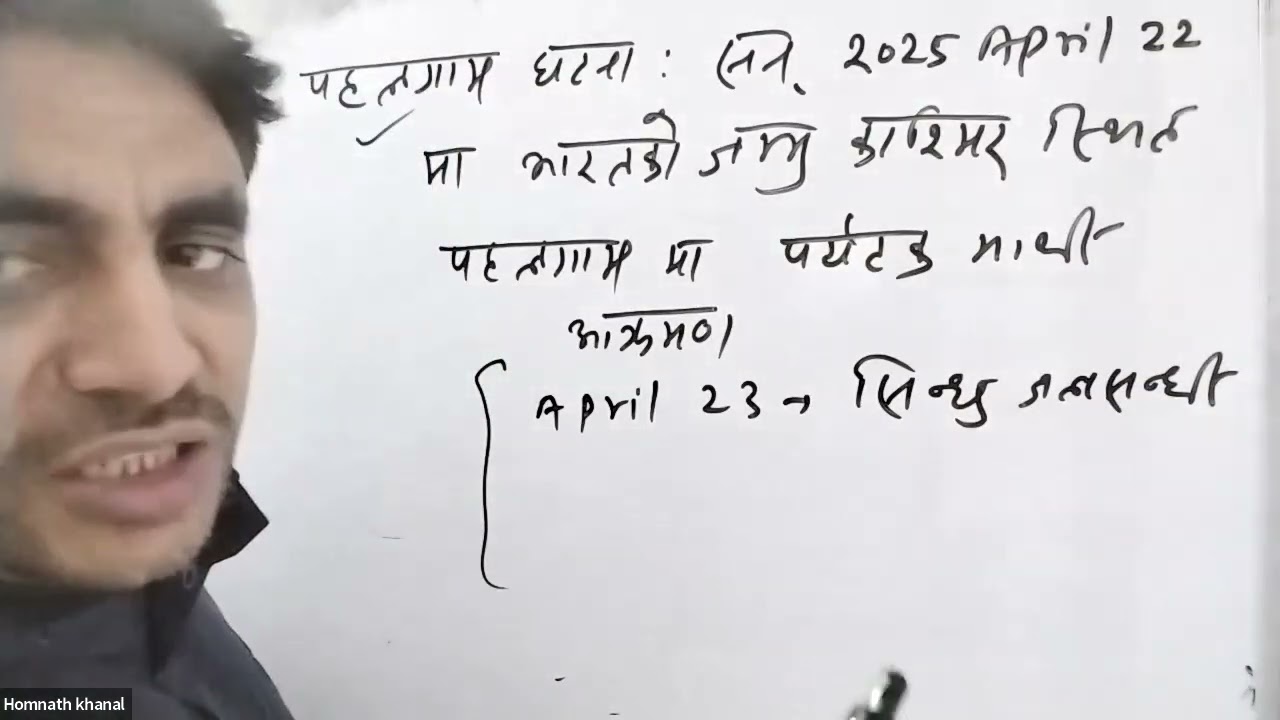 पहलगाम घटना : सन् 2025 April 22
मा भारतको जम्मु काश्मिर स्थित
पहलगाम मा पर्यटक माथी
आक्रमण।
April 23 → सिन्धु जलसन्धी
Homnath khanal